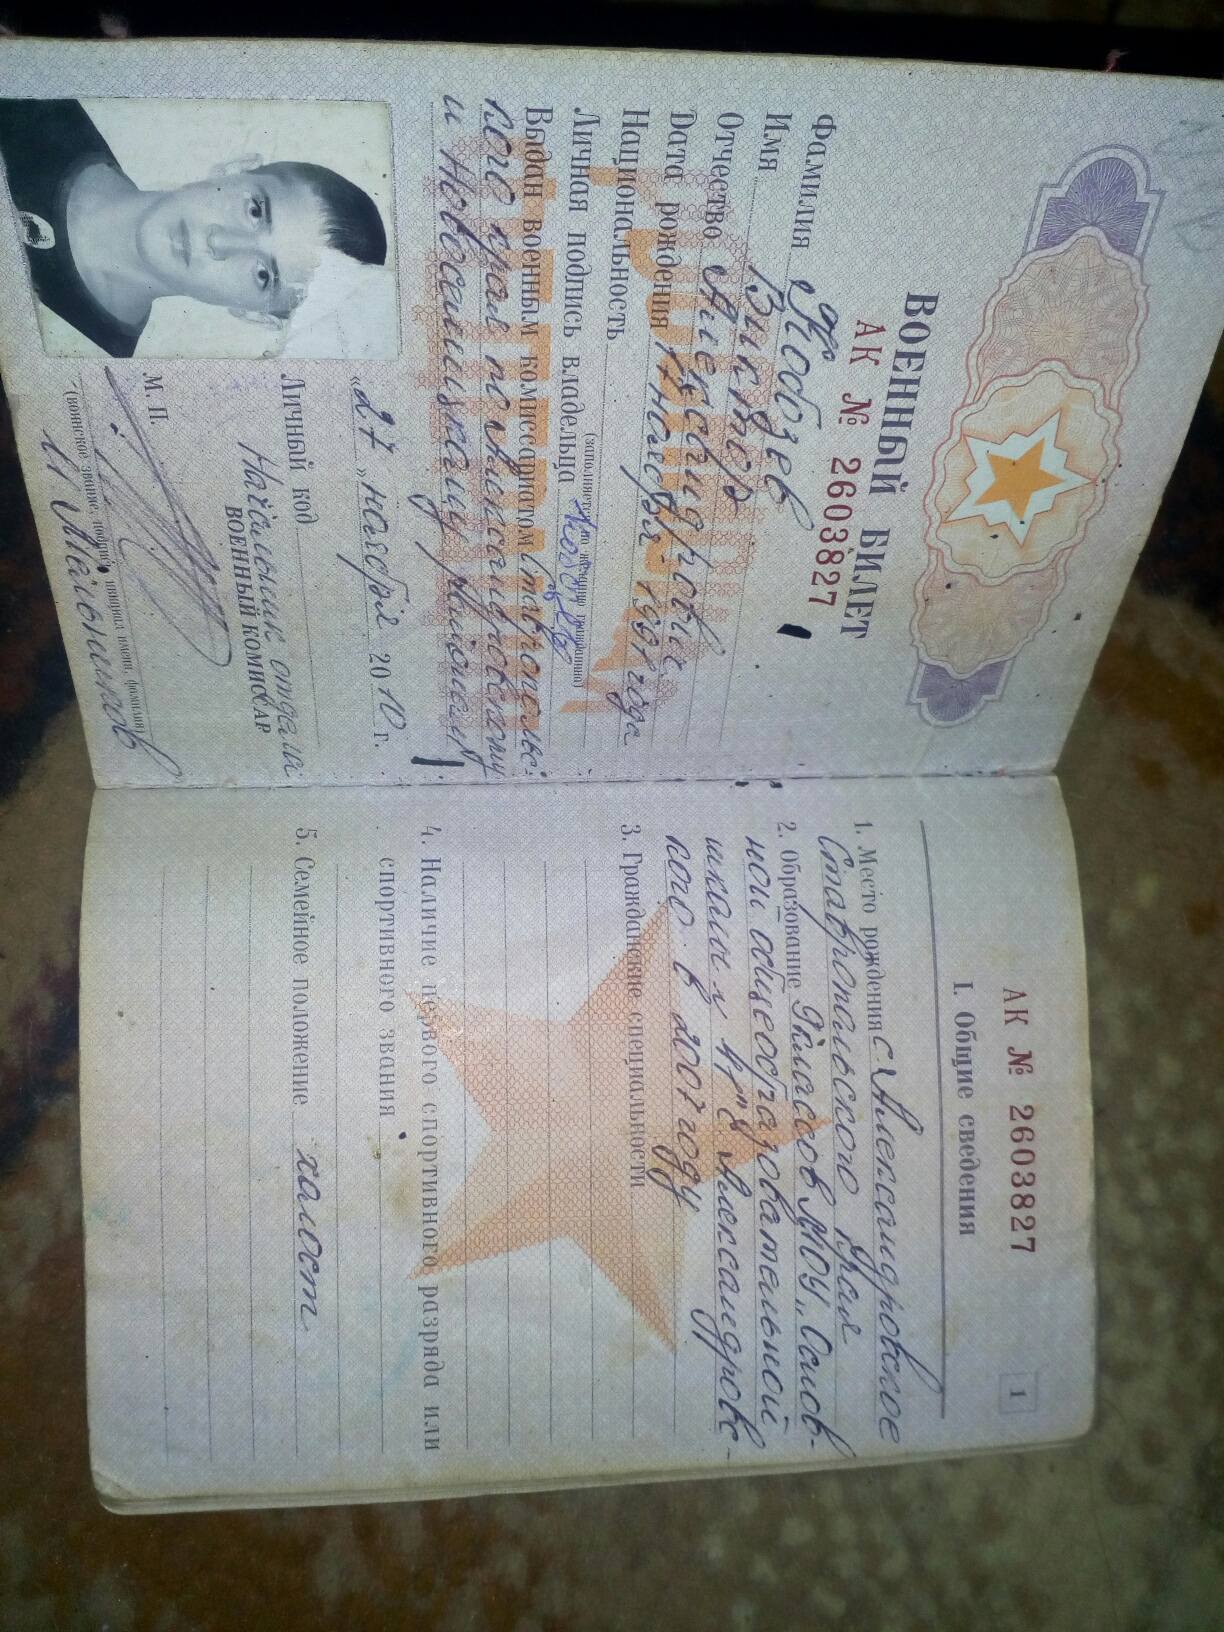 ВОЕННЫЙ БИЛЕТ
АК № 2603827
Фамилия Кобзев
Имя Виктор
Отчество Александрович
Дата рождения 1 ноября 1991 года
Национальность
(заполняется по желанию гражданина)
Личная подпись владельца Кобзев
Выдан военным комиссариатом Ставропольс-
кого края по Александровскому
и Новоселицкому районам
«27» ноября 2010 г.
Личный код
Начальник отдела
ВОЕННЫЙ КОМИССАР
М. П.
(воинское звание, подпись, инициал имени, фамилия)
И Мельников
АК № 2603827
1
I. Общие сведения
1. Место рождения с. Александровское
Ставропольского края
2. Образование 9 классов МОУ „Основ-
ной общеобразовательной
школы № 4" с Александровс-
кого в 2007 году
3. Гражданские специальности
4. Наличие первого спортивного разряда или
спортивного звания
5. Семейное положение холост